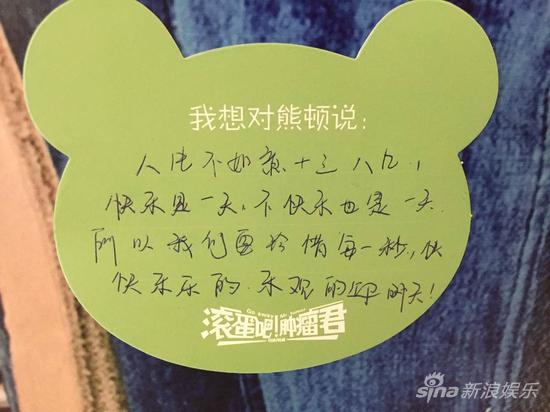 我想对熊顿说:
人生不如意十之八九,
快乐是一天,不快乐也是一天
所以我们要珍惜每一秒,快
快乐乐的.乐观的迎明天!
Go away! Mr. Tumor
滚蛋吧!肿瘤君
sina新浪娱乐